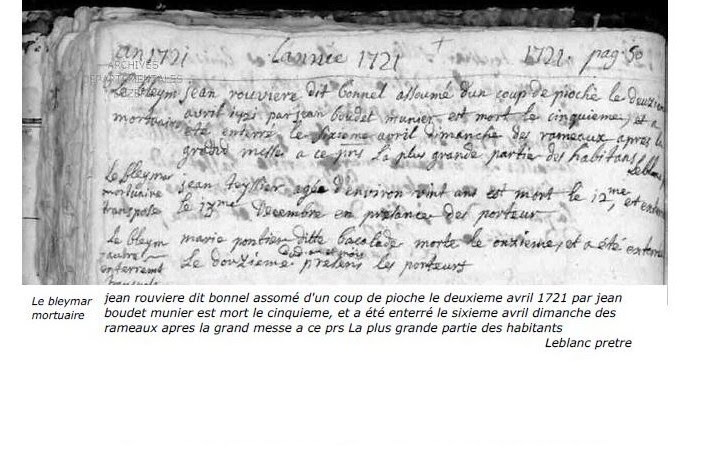 an 1721 Lannee 1721 1721 pag. 50
ARCHIVES
DEPARTEMENTALES
LOZERE
Le bleym jean rouviere dit bonnel assomé d'un coup de pioche le deuzieme
mortuaire avril 1721 par jean boudet munier est mort le cinquieme, et a
été enterré le sixieme avril dimanche des rameaux apres la
grand messe a ce prs La plus grande partie des habitans Leblanc
Le bleymar jean teyssier agée d'environ vint ans est mort le 12me, et enterré
mortuaire
transposé le 13me Decembre en présance des porteur
Le bleym marie pontier ditte bacalade morte le onzieme, et a été enterré
autre
enterrement Le douzieme presens les porteurs
Le bleymar
mortuaire
jean rouviere dit bonnel assomé d'un coup de pioche le deuxieme avril 1721 par jean
boudet munier est mort le cinquieme, et a été enterré le sixieme avril dimanche des
rameaux apres la grand messe a ce prs La plus grande partie des habitants
Leblanc pretre